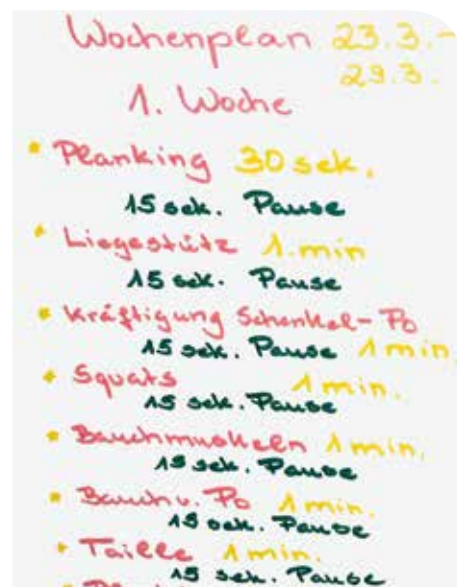 Wochenplan 23.3.-
29.3.
1. Woche
* Planking 30 sek.
15 sek. Pause
* Liegestütz 1.min
15 sek. Pause
* Kräftigung Schenkel-Po
15 sek. Pause 1 min.
* Squats 1 min.
15 sek. Pause
* Bauchmuskeln 1 min.
15 sek. Pause
* Bauch u. Po 1 min.
15 sek. Pause
* Taille 1 min.
15 sek. Pause